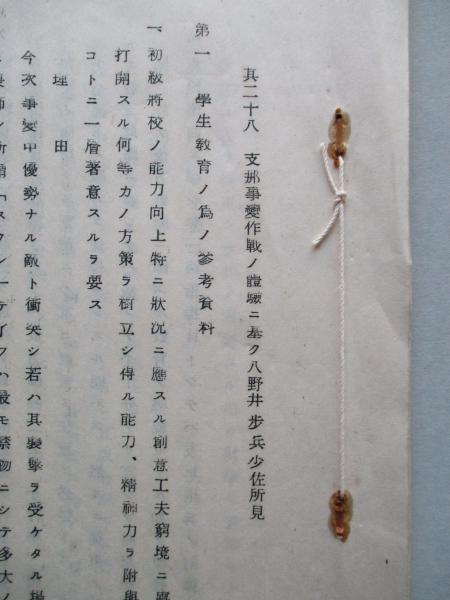 其二十八　支那事變作戰ノ體驗ニ基ク八野井步兵少佐所見
第一　學生敎育ノ爲ノ參考資料
一、初級將校ノ能力向上特ニ狀況ニ應スル創意工夫窮境ニ
打開スル何等カノ方策ヲ樹立シ得ル能力、精神力ヲ附與
コトニ一層著意スルヲ要ス
理由
今次事變中優勢ナル敵ト衝突シ若ハ其襲擊ヲ受ケタル場
ハ最モ禁物ニシテ多大ノ